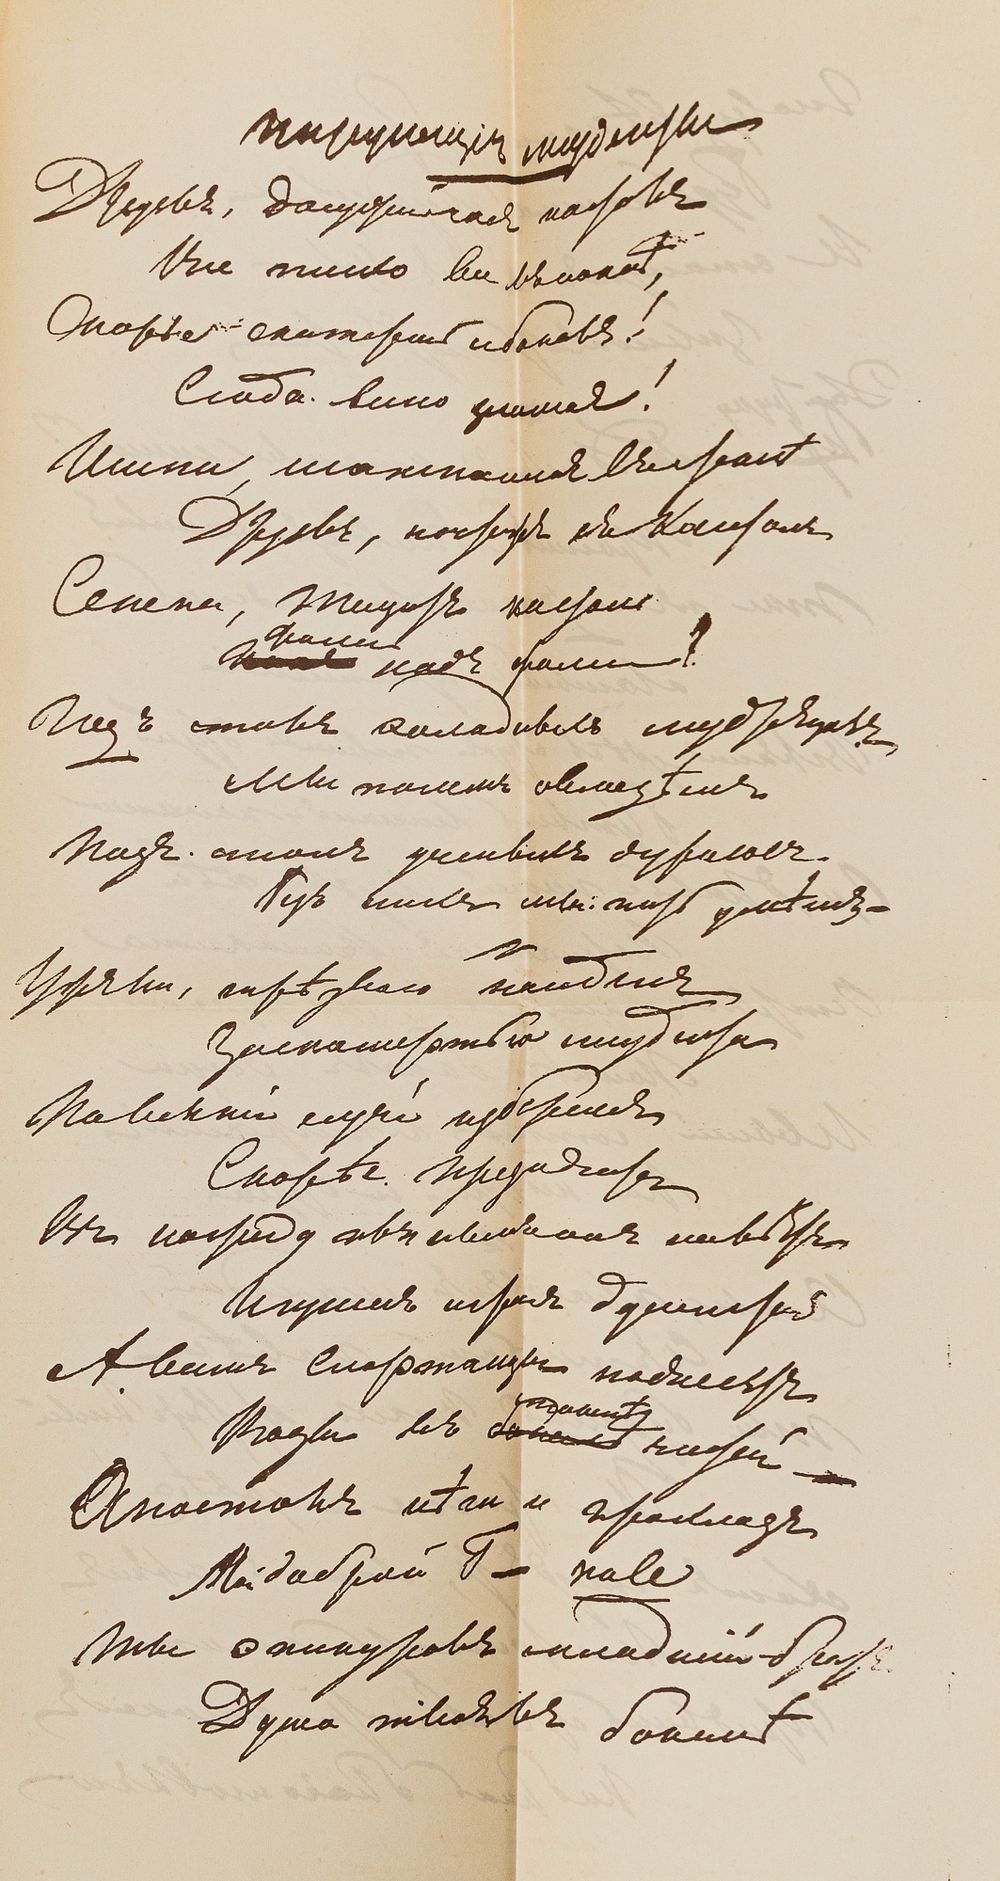 Пирующіе студенты
Друзья, досужный часъ насталъ
Все тихо все въ покоѣ,
Скорѣе скатерть и бокалъ!
Сюда вино златое!
Шипи, шампанское въ стеклѣ
Друзья, почтожъ съ Кантомъ
Сенека, Тацитъ на столѣ
надъ фоліантомъ?
Подъ столъ холодныхъ мудрецовъ,
Мы полемъ овладѣемъ
Подъ столъ ученыхъ дураковъ.
Безъ нихъ мы пить умѣемъ —
Ужели, трезваго найдемъ
За скатертью студента
На всякій случай изберемъ
Скорѣе президента
Въ награду пьянымъ нальетъ
И пуншъ и грогъ душистый
А вамъ Спартанцы поднесетъ
Воды въ стаканѣ чистой —
Апостолъ нѣги и прохладъ
Мой добрый Г — vale
Ты эпикуровъ младшій братъ
Душа твоя въ бокалѣ